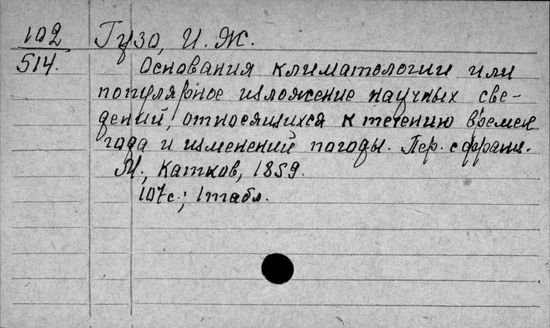 102 Гузо, И. Ж.
514. Основания климатологии или
популярное изложение научных све-
дений, относящихся к течению времен
года и изменений погоды. Пер. с франц.
М., Катков, 1859.
107с.; 1 табл.